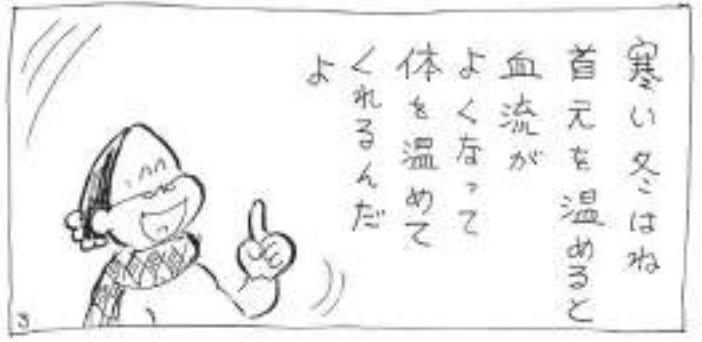 寒い冬はね
首元を温めると
血流が
よくなって
体を温めて
くれるんだ
よ
3